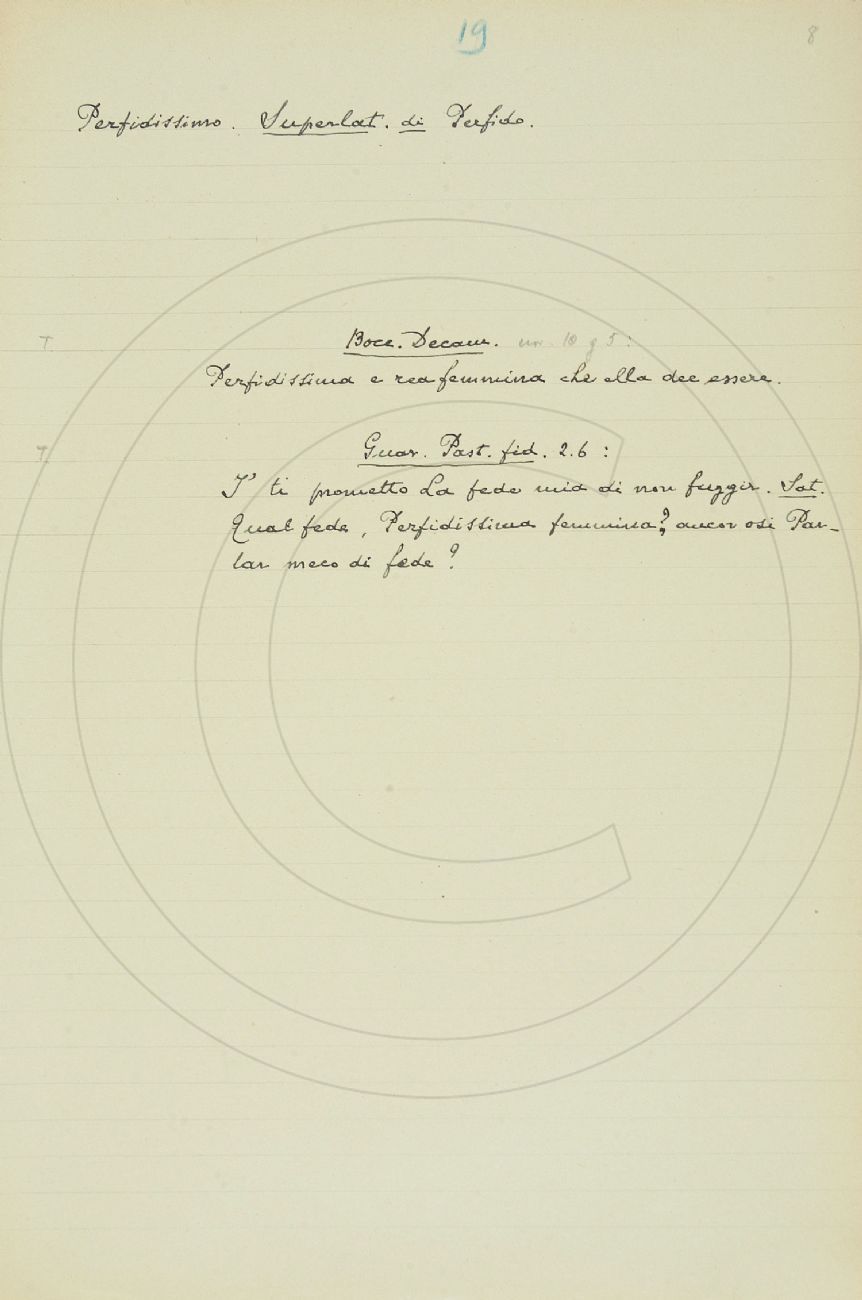 19
8
Perfidissimo. Superlat. di Perfido.
T. Bocc. Decam. nov. 10 g 5:
Perfidissima e rea femmina che ella dee essere.
T. Guar. Past. fid. 2.6:
I' ti prometto La fede mia di non fuggir. Sat.
Qual fede, Perfidissima femmina? ancor osi Par-
lar meco di fede?